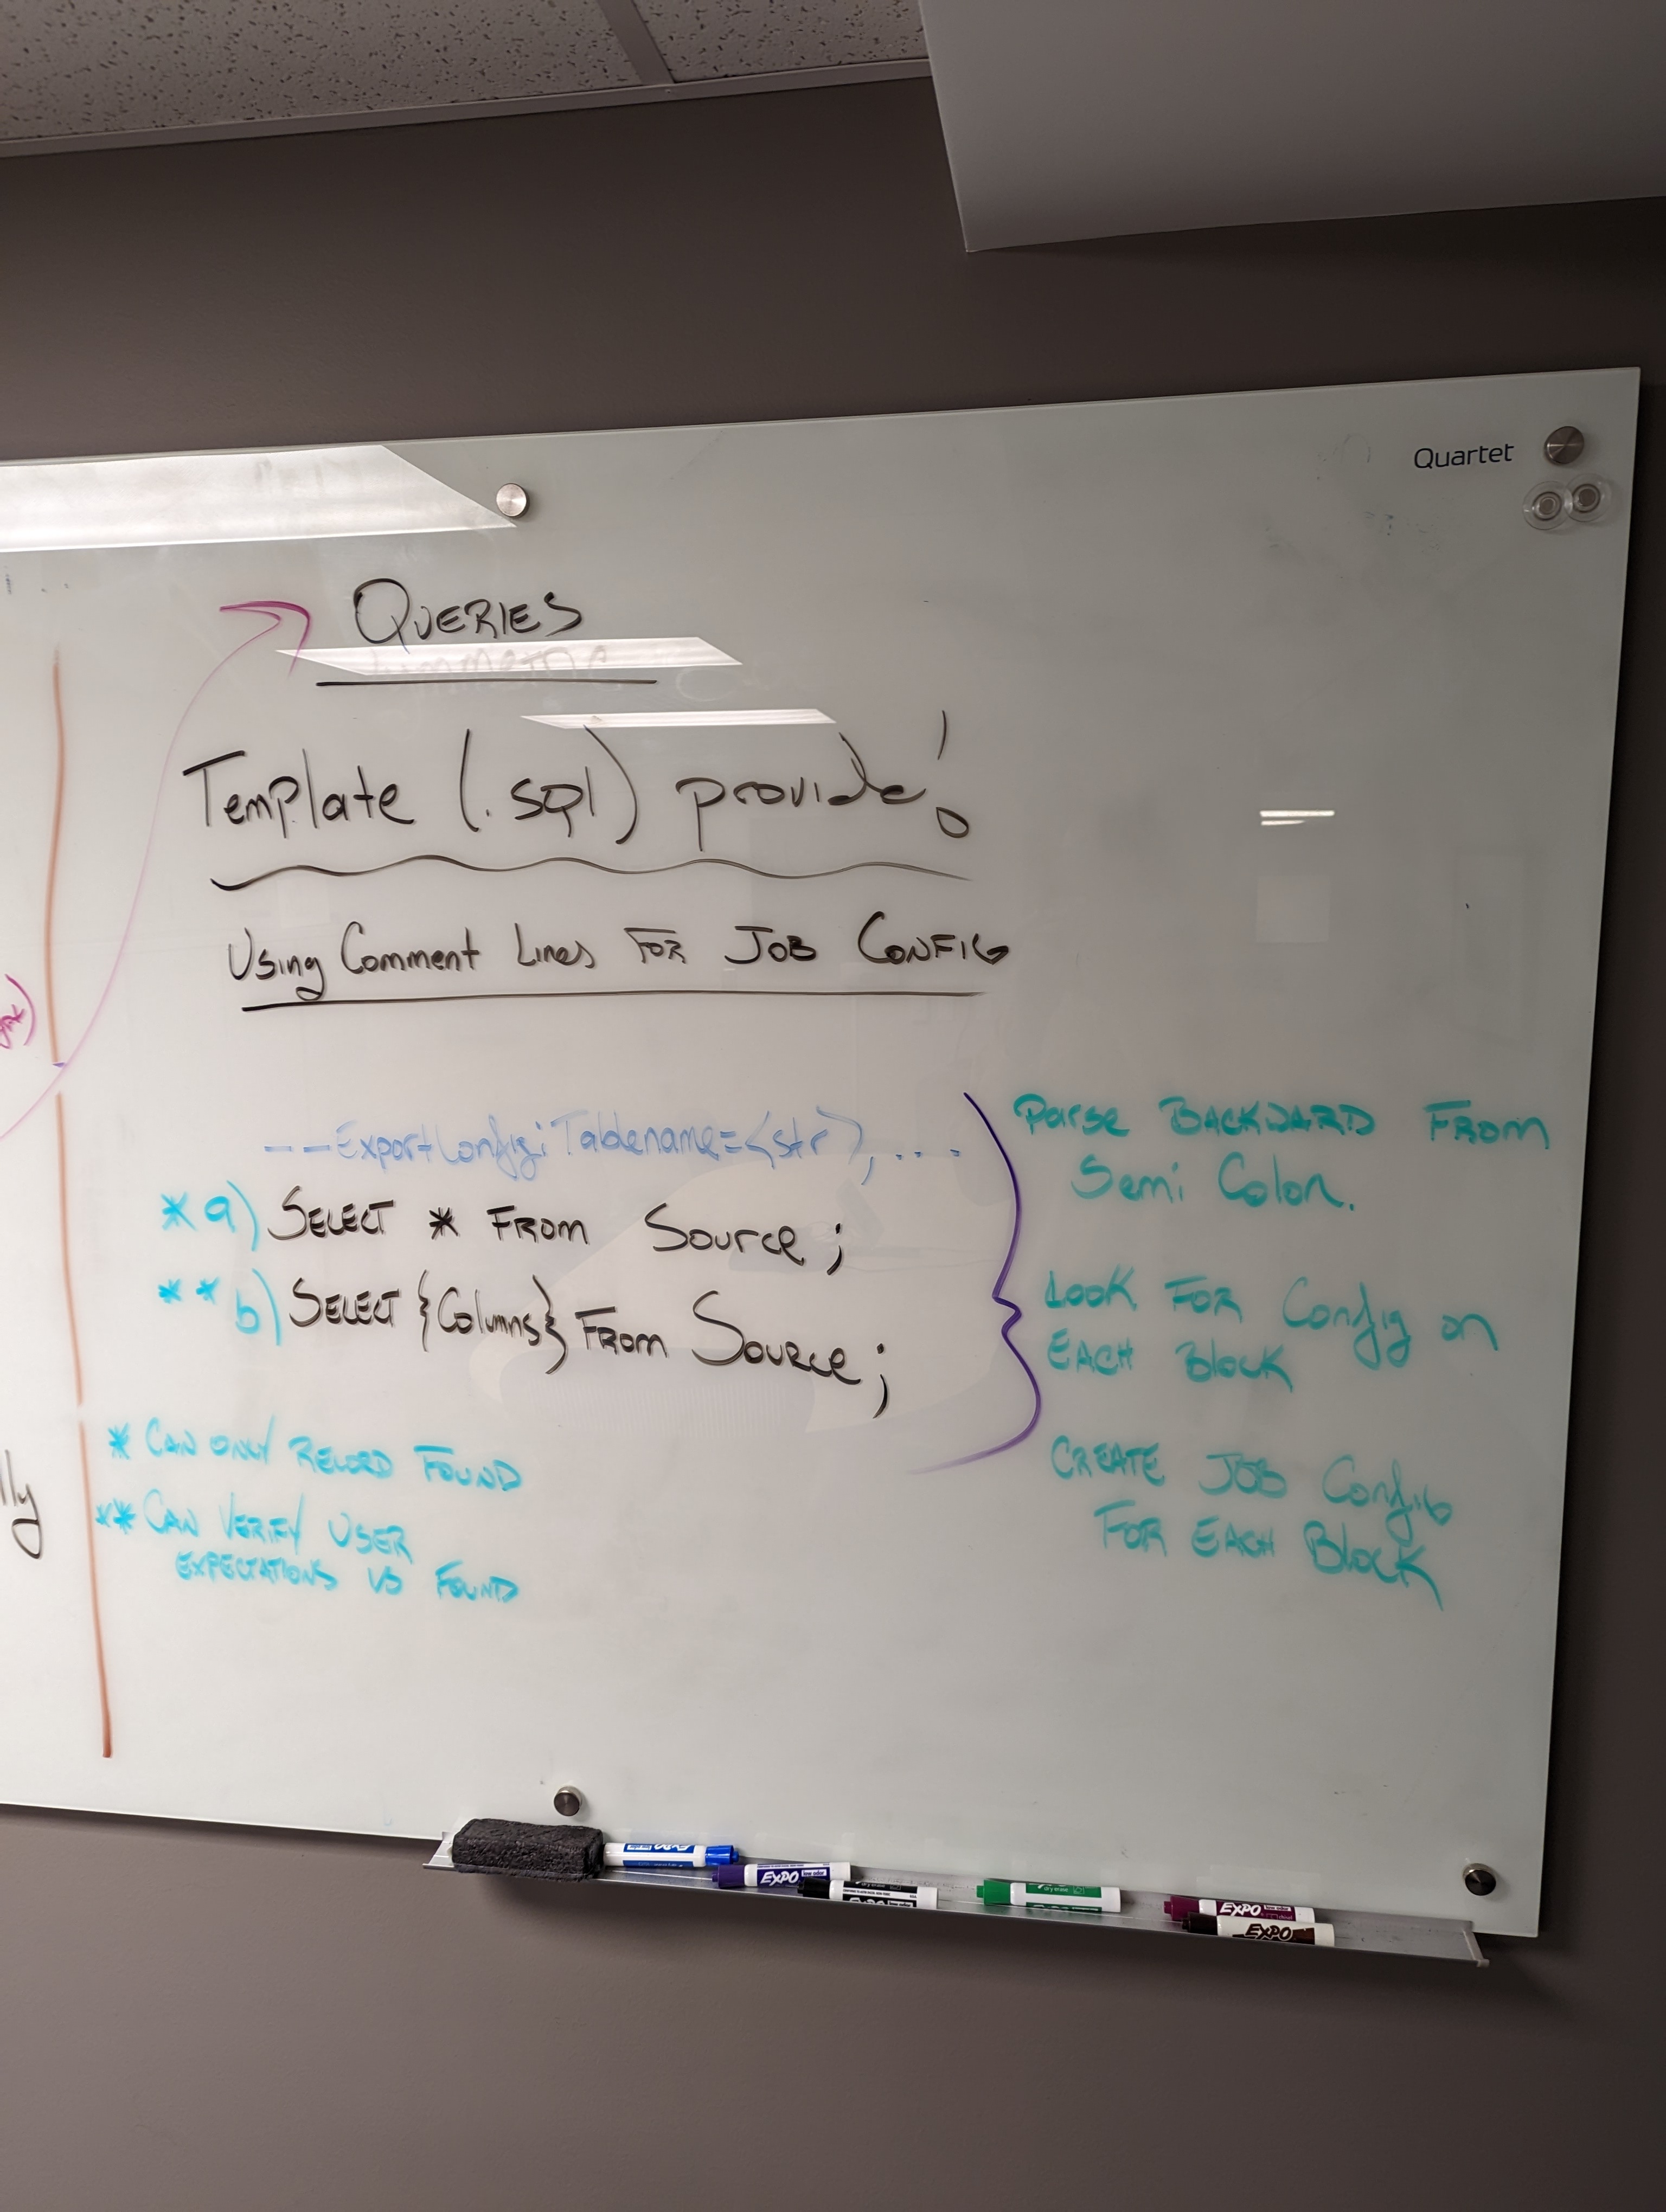 Quartet
QUERIES
Template (.sql) provide!
Using Comment Lines FOR JOB CONFIG
--ExportConfig: Tablename=<str>, ...
* a) SELECT * FROM Source;
** b) SELECT {Columns} FROM SOURCE;
* CAN ONLY RECORD FOUND
** CAN VERIFY USER
EXPECTATIONS VS FOUND
Parse BACKWARD FROM
Semi Colon.
LOOK FOR Config on
EACH Block
CREATE JOB Config
FOR EACH Block
lly
EXPO
EXPO
EXPO
EXPO